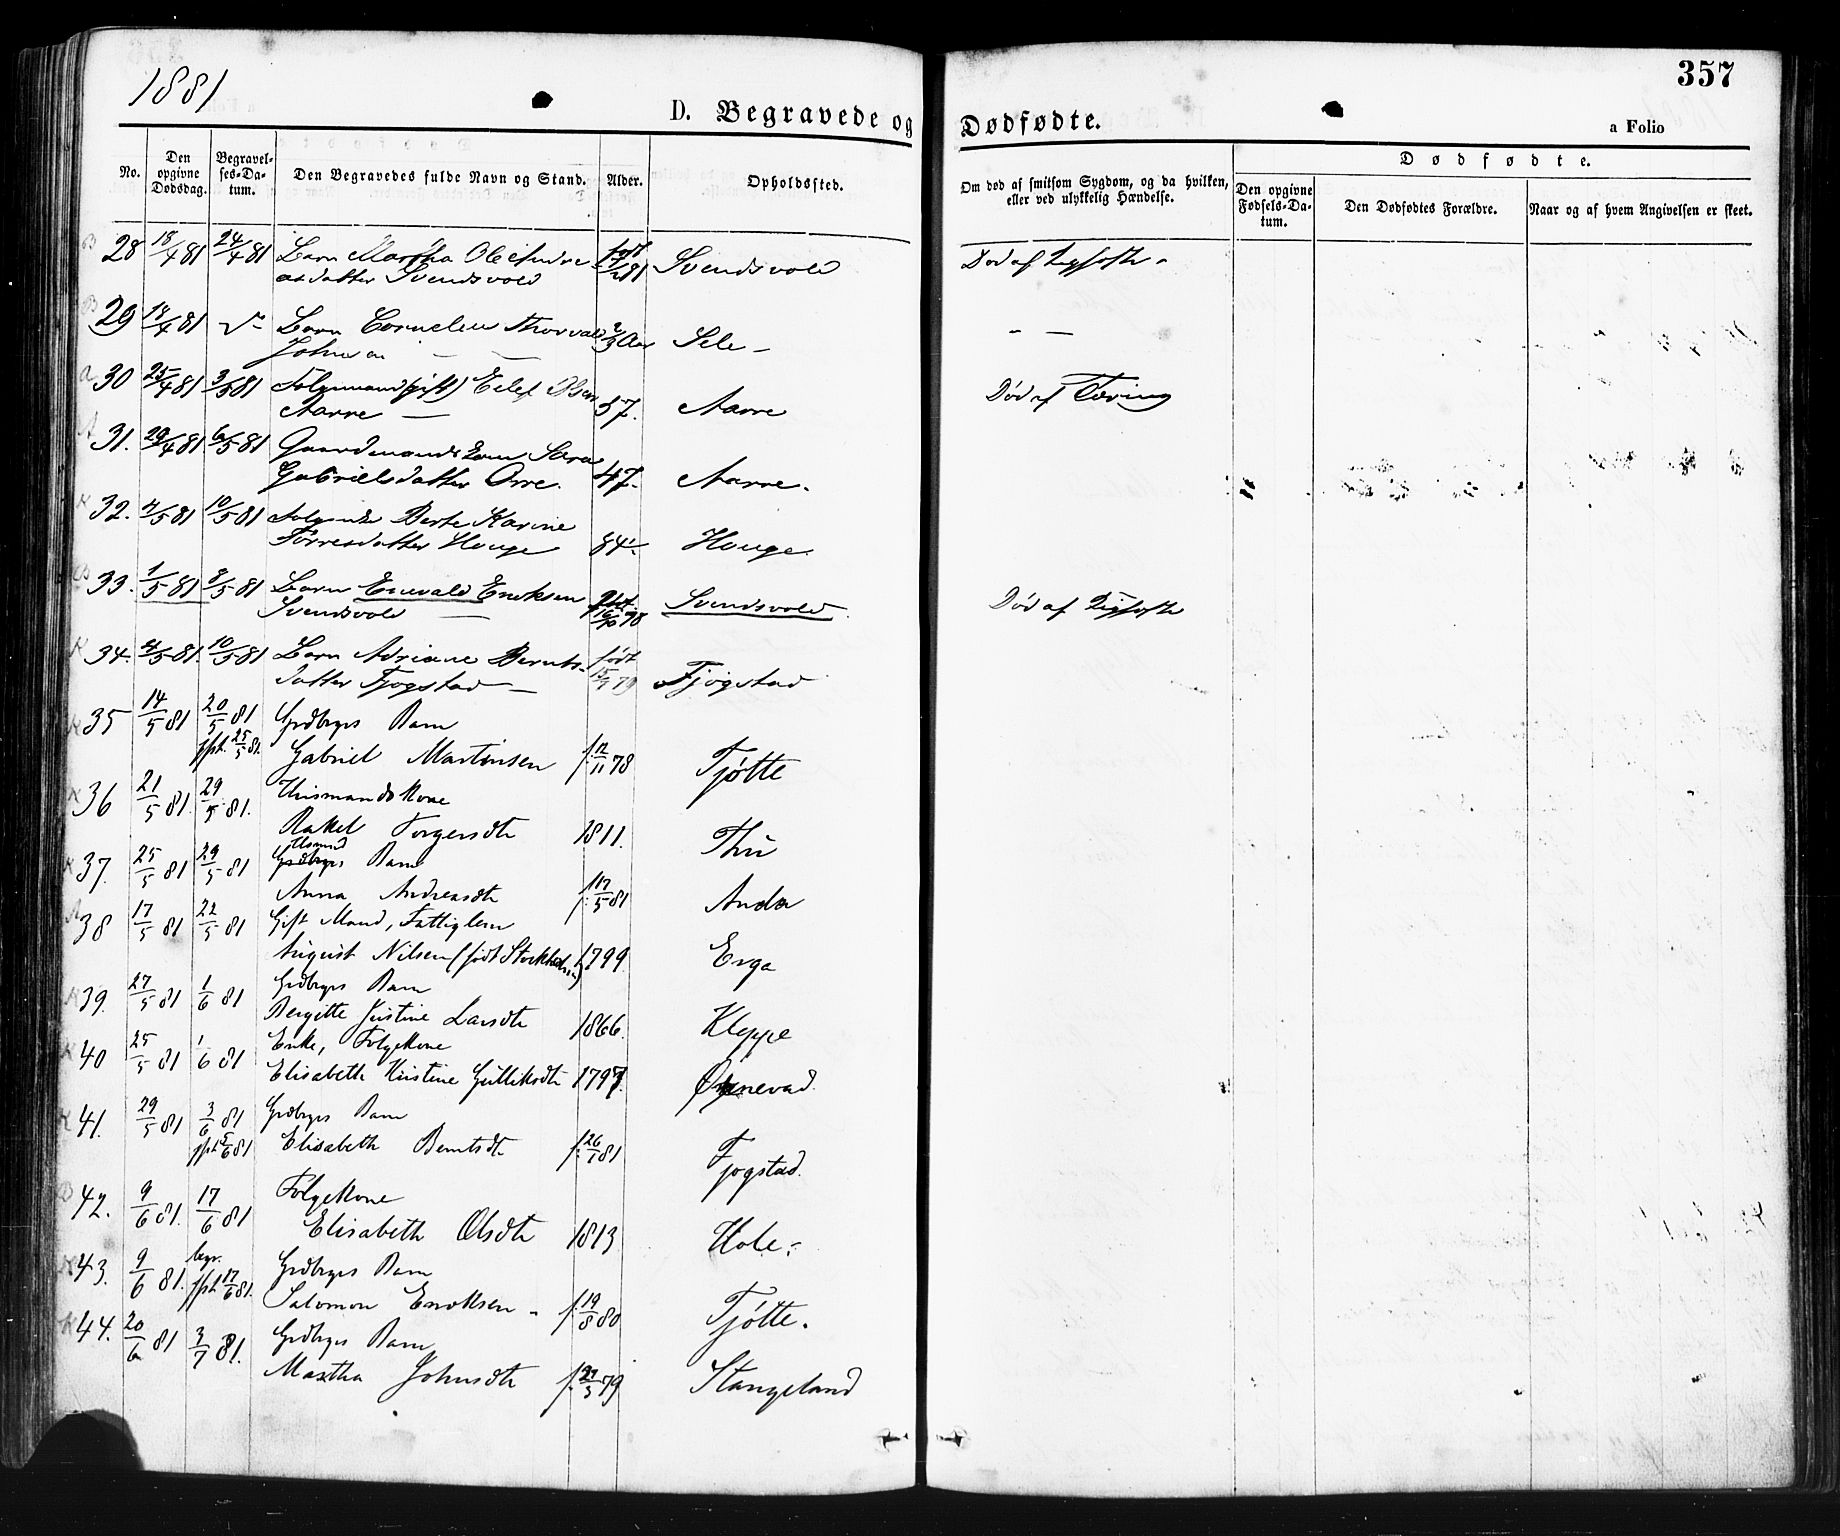 1881
357
D. Begravede og Dødfødte.
a Folio
No.
Den opgivne Dødsdag.
Begravelses-Datum.
Den Begravedes fulde Navn og Stand.
Alder.
Opholdssted.
Om død af smitsom Sygdom, og da hvilken, eller ved ulykkelig Hændelse.
Dødfødte.
Den opgivne Fødsels-Datum.
Den Dødfødtes Forældre.
Naar og af hvem Angivelsen er skeet.
B 28 18/4 81 24/4 81 Barn Martha
datter Svendsvold 81 Svendsvold Død af
B 29 18/4 81 Barn Cornelius Thorvald
Johnsen 2/3 Aar Sele - - —
a 30 25/4 81 3/5 81 Folgemand (gift) Eilef Olsen
Aarre — 57. Aarre Død af Tæring
A 31. 29/4 81 6/5 81 Gaardmandskone Sara
Gabrielsdatter Orre. 47. Aarre.
K 32. 4/5 81 10/5 81 Berte Karine
Torresdatter Houge 84. Houge.
B 33. 1/5 81 8/5 81 Barn Enevald Enoksen
Svendsvold — 78 Svendsvold. Død af
K 34. 4/5 81. 10/5 81 Barn Adriane Bernts-
datter Fjogstad — født 79 Fjogstad
K 35 14/5 81 20/5 81 Grdbrgrs Barn
jfpk. 25/5 81. Gabriel Martinsen f. 12/11 78 Tjøtte
K 36 21/5 81. 29/5 81. Husmandskone
Rakel Torgersdtr 1811. Thu
K 37. 25/5 81 29/5 81 Grdbrgrs Barn
Anna Andreasdtr f. 17/5 81 Anda
A 38 17/5 81 22/5 81 Gift Mand, Fattiglem
August Nilsen (født Stockholm) 1799. Erga
K 39. 27/5 81 1/6 81 Grdbrgrs Barn
Bergitte Justine Larsdtr 1866. Kleppe
K 40 25/5 81 1/6 81 Enke, Folgekone
Elisabeth Kristine Gulliksdtr 1797. Øxnevad.
K 41. 29/5 81 3/6 81 Grdbrgrs Barn
jfpk 5/6 81 Elisabeth Berntsdtr f. 26/1 81 Fjogstad.
B 42. 9/6 81. 17/6 81 Folgekone
Elisabeth Olsdtr 1813 Hole.-
K 43. 9/6 81. begr.
jfpk 17/6 81. Grdbrgrs Barn
Salomon Enoksen - f. 19/8 80 Tjøtte.
K 44. 20/6 81 3/7 81. Grdbrgrs Barn
Martha Johnsdtr f. 27/3 79 Stangeland